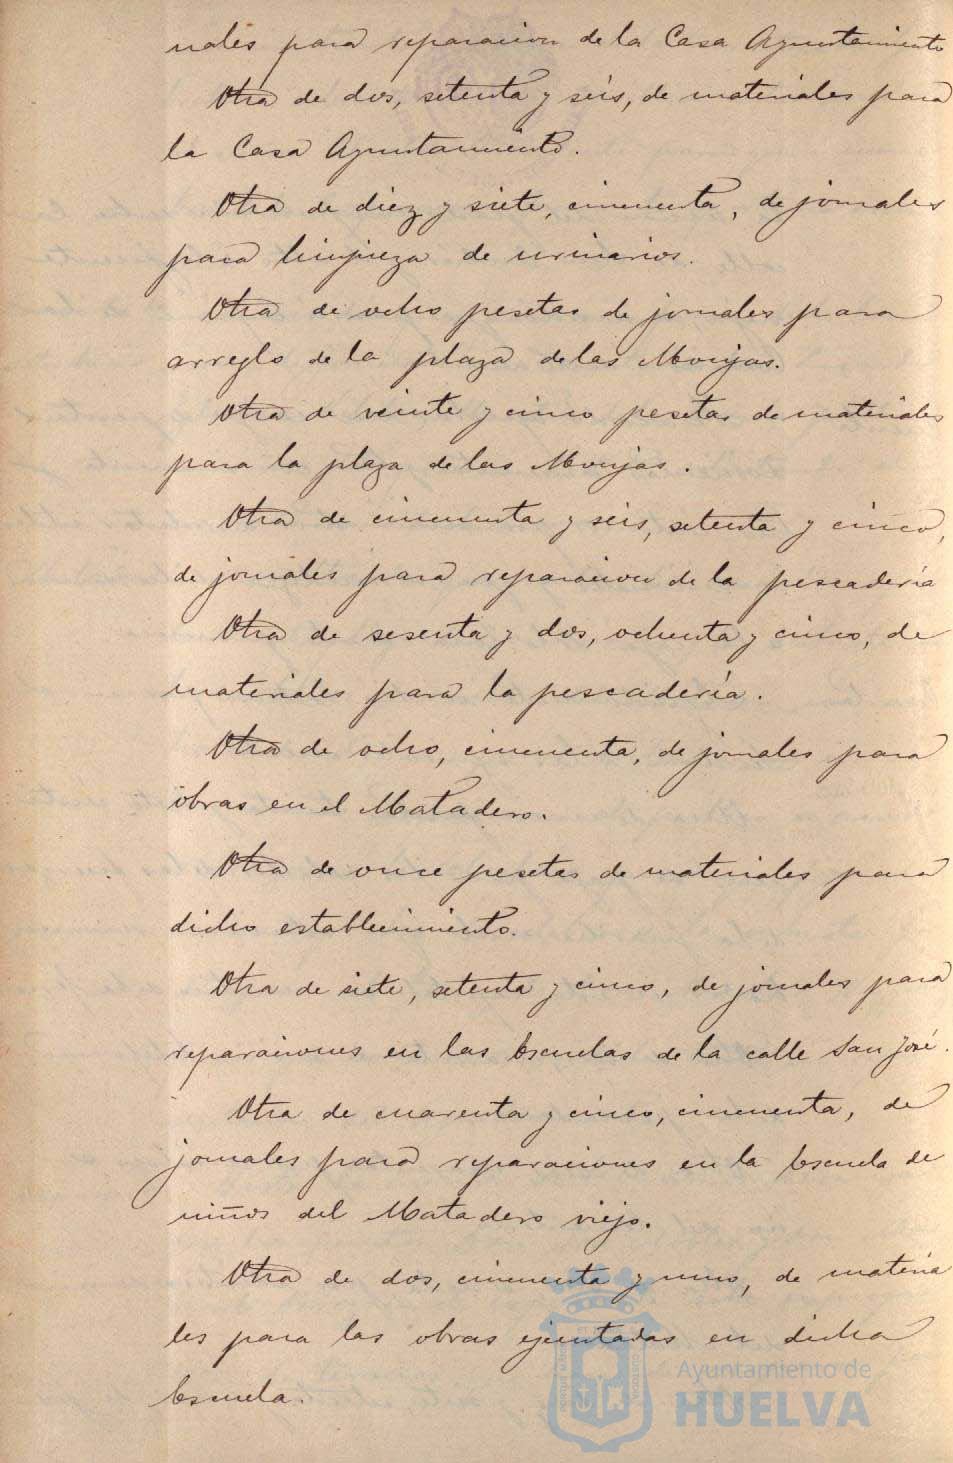 nales para reparacion de la Casa Ayuntamiento
Otra de dos, setenta y seis, de materiales para
la Casa Ayuntamiento.
Otra de diez y siete, cincuenta, de jornales
para limpieza de urinarios.
Otra de ocho pesetas de jornales para
arreglo de la plaza de las Monjas.
Otra de veinte y cinco pesetas de materiales
para la plaza de las Monjas.
Otra de cincuenta y seis, setenta y cinco,
de jornales para reparacion de la pescadería
Otra de sesenta y dos, ochenta y cinco, de
materiales para la pescadería.
Otra de ocho, cincuenta, de jornales para
obras en el Matadero.
Otra de once pesetas de materiales para
dicho establecimiento.
Otra de siete, setenta y cinco, de jornales para
reparaciones en las Escuelas de la calle San José.
Otra de cuarenta y cinco, cincuenta, de
jornales para reparaciones en la Escuela de
niños del Matadero viejo.
Otra de dos, cincuenta y uno, de materia
les para las obras ejecutadas en dicha
Escuela.
Ayuntamiento de
HUELVA